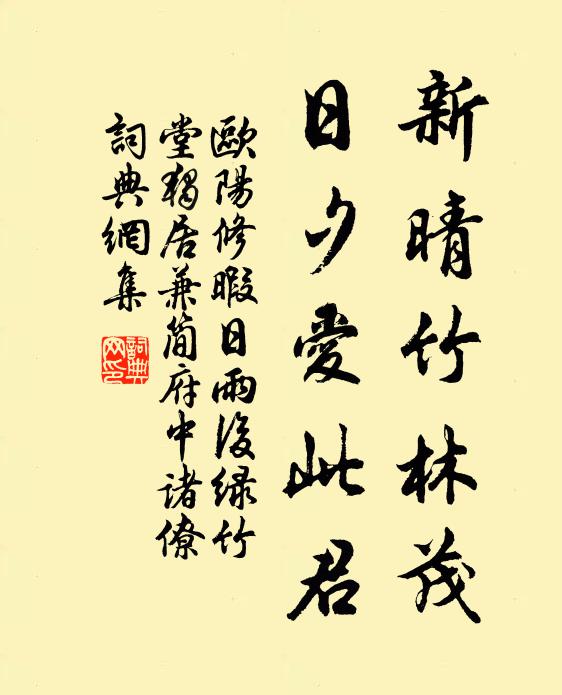 新晴竹林茂
日夕愛此君
歐陽修暇日雨後綠竹
堂獨居兼簡府中諸僚
詞典網集
詞典网印